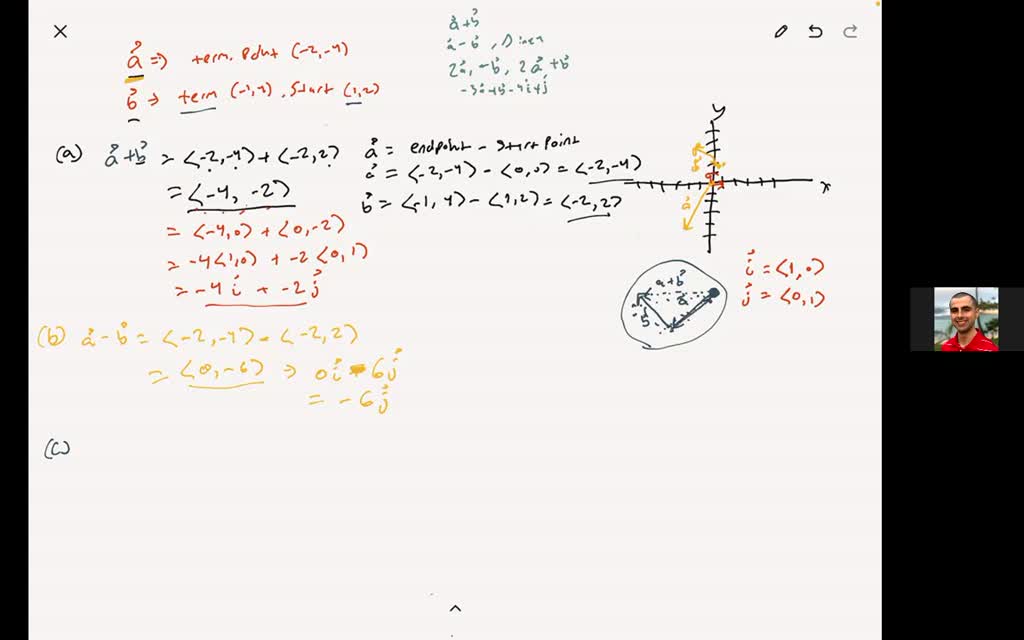 a⃗ => term. Point (-2,-4)
b⃗ → term (-1,4). Start (1,2)
a⃗+b⃗
a⃗-b⃗,
2a⃗, -b⃗, 2a⃗+b⃗
(a) a⃗+b⃗ = <-2,-4> + <-2,2>
= <-4, -2>
= <-4,0> + <0,-2>
= -4<1,0> + -2<0,1>
= -4i⃗ + -2j⃗
a⃗ = endpoint - start point
a⃗ = <-2,-4> - <0,0> = <-2,-4>
b⃗ = <-1,4> - <1,2> = <-2,2>
y
x
b⃗
a⃗
a+b⃗
a⃗
b⃗
i⃗ = <1,0>
j⃗ = <0,1>
(b) a⃗-b⃗ = <-2,-4> - <-2,2>
= <0,-6> → 0i⃗ - 6j⃗
= -6j⃗
(c)